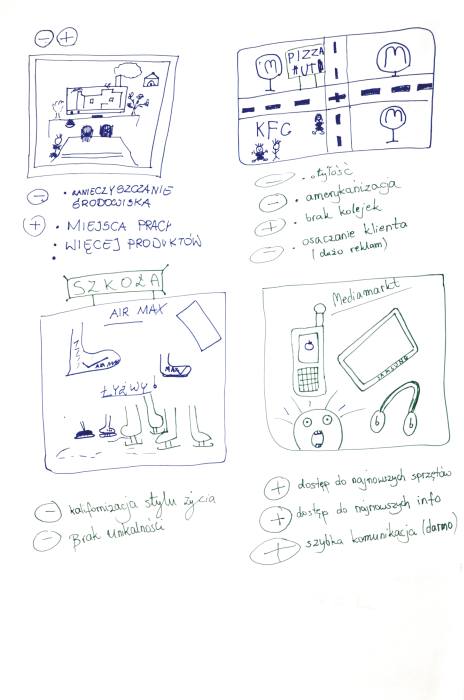 ZANIECZYSZCZANIE
ŚRODOWISKA
MIEJSCA PRACY
WIĘCEJ PRODUKTÓW
M
PIZZA
HUT
M
KFC
M
otyłość
amerykanizacja
brak kolejek
osaczanie klienta
(dużo reklam)
SZKOŁA
AIR MAX
MAX
ŁYŻWY
kalifornizacja stylu życia
Brak unikalności
Mediamarkt
SAMSUNG
b
b
dostęp do najnowszych sprzętów
dostęp do najnowszych info
szybka komunikacja (darmo)